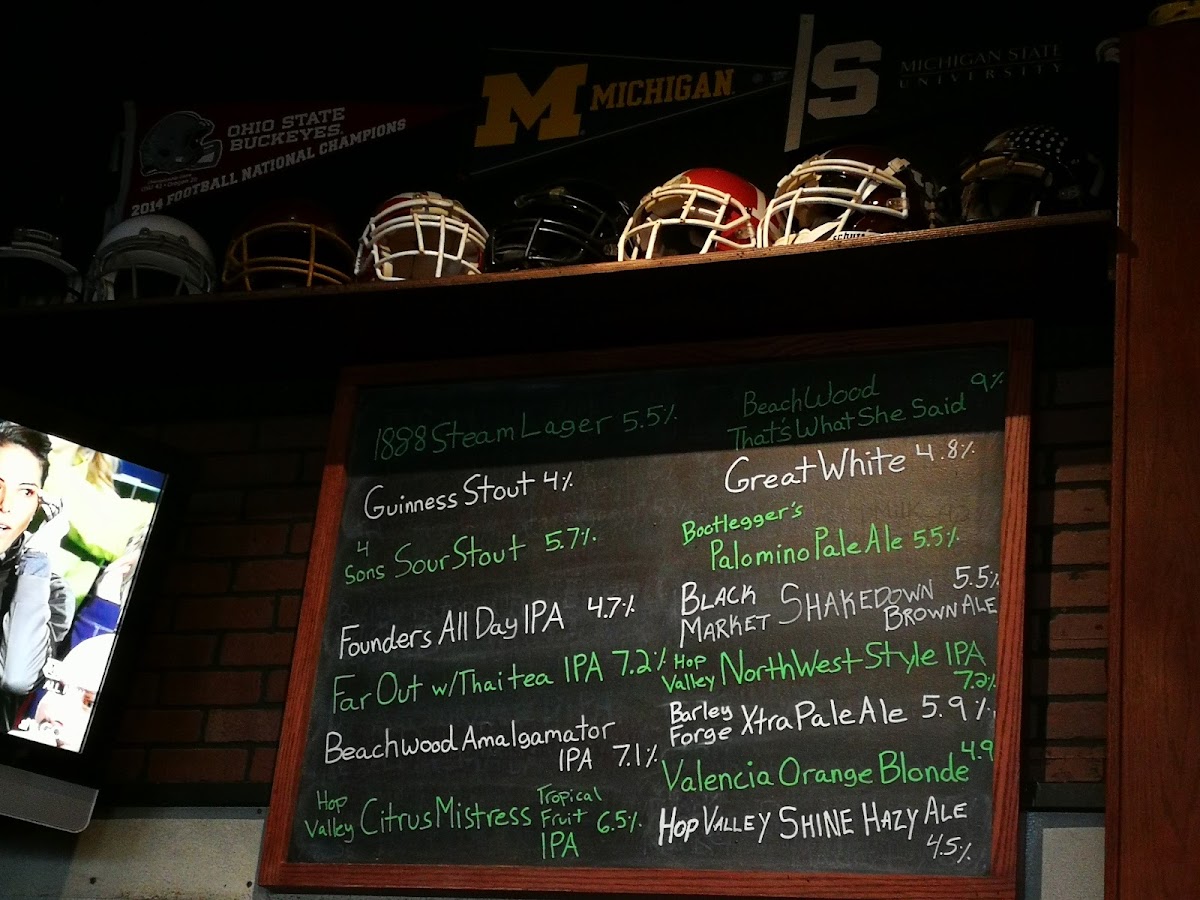 OHIO STATE
BUCKEYES
2014 FOOTBALL NATIONAL CHAMPIONS
M MICHIGAN
S MICHIGAN STATE
UNIVERSITY
1888 Steam Lager 5.5%
Guinness Stout 4%
4
Sons Sour Stout 5.7%
Founders All Day IPA 4.7%
Far Out w/Thai tea IPA 7.2%
Beachwood Amalgamator
IPA 7.1%
Hop
Valley Citrus Mistress Tropical
Fruit 6.5%
IPA
BeachWood 9%
That's What She Said
Great White 4.8%
Bootlegger's
Palomino Pale Ale 5.5%
BLACK
MARKET SHAKEDOWN 5.5%
BROWN ALE
Hop
Valley NorthWest Style IPA
7.2%
Barley
Forge Xtra Pale Ale 5.9%
Valencia Orange Blonde 4.9
HOP VALLEY SHINE HAZY ALE
4.5%